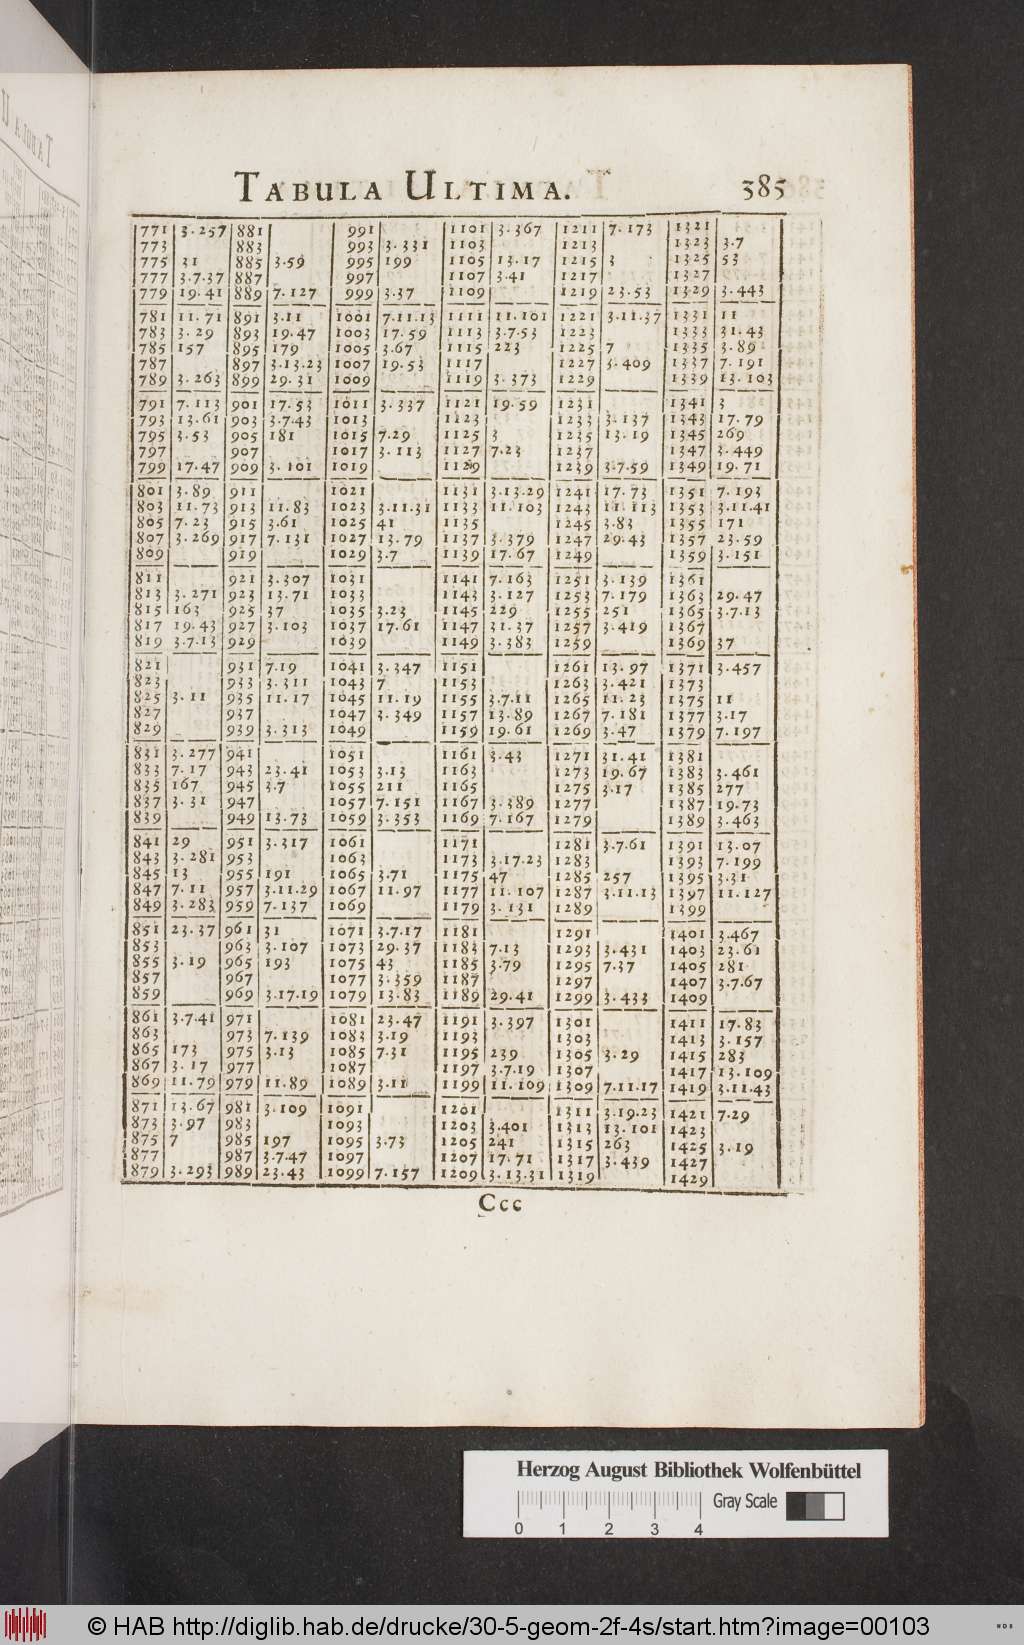 TABULA ULTIMA. 385
771 3.257 881 991 1101 3.367 1211 7.173 1321
773 883 993 3.331 1103 1213 1323 3.7
775 31 885 3.59 995 199 1105 13.17 1215 3 1325 53
777 3.7.37 887 997 1107 3.41 1217 1327
779 19.41 889 7.127 999 3.37 1109 1219 23.53 1329 3.443
781 11.71 891 3.11 1001 7.11.13 1111 11.101 1221 3.11.37 1331 11
783 3.29 893 19.47 1003 17.59 1113 3.7.53 1223 1333 31.43
785 157 895 179 1005 3.67 1115 223 1225 7 1335 3.89
787 897 3.13.23 1007 19.53 1117 1227 3.409 1337 7.191
789 3.263 899 29.31 1009 1119 3.373 1229 1339 13.103
791 7.113 901 17.53 1011 3.337 1121 19.59 1231 1341 3
793 13.61 903 3.7.43 1013 1123 1233 3.137 1343 17.79
795 3.53 905 181 1015 7.29 1125 3 1235 13.19 1345 269
797 907 1017 3.113 1127 7.23 1237 1347 3.449
799 17.47 909 3.101 1019 1129 1239 3.7.59 1349 19.71
801 3.89 911 1021 1131 3.13.29 1241 17.73 1351 7.193
803 11.73 913 11.83 1023 3.11.31 1133 11.103 1243 11.113 1353 3.11.41
805 7.23 915 3.61 1025 41 1135 1245 3.83 1355 171
807 3.269 917 7.131 1027 13.79 1137 3.379 1247 29.43 1357 23.59
809 919 1029 3.7 1139 17.67 1249 1359 3.151
811 921 3.307 1031 1141 7.163 1251 3.139 1361
813 3.271 923 13.71 1033 1143 3.127 1253 7.179 1363 29.47
815 163 925 37 1035 3.23 1145 229 1255 251 1365 3.7.13
817 19.43 927 3.103 1037 17.61 1147 31.37 1257 3.419 1367
819 3.7.13 929 1039 1149 3.383 1259 1369 37
821 931 7.19 1041 3.347 1151 1261 13.97 1371 3.457
823 933 3.311 1043 7 1153 1263 3.421 1373
825 3.11 935 11.17 1045 11.19 1155 3.7.11 1265 11.23 1375 11
827 937 1047 3.349 1157 13.89 1267 7.181 1377 3.17
829 939 3.313 1049 1159 19.61 1269 3.47 1379 7.197
831 3.277 941 1051 1161 3.43 1271 31.41 1381
833 7.17 943 23.41 1053 3.13 1163 1273 19.67 1383 3.461
835 167 945 3.7 1055 211 1165 1275 3.17 1385 277
837 3.31 947 1057 7.151 1167 3.389 1277 1387 19.73
839 949 13.73 1059 3.353 1169 7.167 1279 1389 3.463
841 29 951 3.317 1061 1171 1281 3.7.61 1391 13.07
843 3.281 953 1063 1173 3.17.23 1283 1393 7.199
845 13 955 191 1065 3.71 1175 47 1285 257 1395 3.31
847 7.11 957 3.11.29 1067 11.97 1177 11.107 1287 3.11.13 1397 11.127
849 3.283 959 7.137 1069 1179 3.131 1289 1399
851 23.37 961 31 1071 3.7.17 1181 1291 1401 3.467
853 963 3.107 1073 29.37 1183 7.13 1293 3.431 1403 23.61
855 3.19 965 193 1075 43 1185 3.79 1295 7.37 1405 281
857 967 1077 3.359 1187 1297 1407 3.7.67
859 969 3.17.19 1079 13.83 1189 29.41 1299 3.433 1409
861 3.7.41 971 1081 23.47 1191 3.397 1301 1411 17.83
863 973 7.139 1083 3.19 1193 1303 1413 3.157
865 173 975 3.13 1085 7.31 1195 239 1305 3.29 1415 283
867 3.17 977 1087 1197 3.7.19 1307 1417 13.109
869 11.79 979 11.89 1089 3.11 1199 11.109 1309 7.11.17 1419 3.11.43
871 13.67 981 3.109 1091 1201 1311 3.19.23 1421 7.29
873 3.97 983 1093 1203 3.401 1313 13.101 1423
875 7 985 197 1095 3.73 1205 241 1315 263 1425 3.19
877 987 3.7.47 1097 1207 17.71 1317 3.439 1427
879 3.293 989 23.43 1099 7.157 1209 3.13.31 1319 1429
Ccc
Herzog August Bibliothek Wolfenbüttel
Gray Scale
0 1 2 3 4
© HAB http://diglib.hab.de/drucke/30-5-geom-2f-4s/start.htm?image=00103